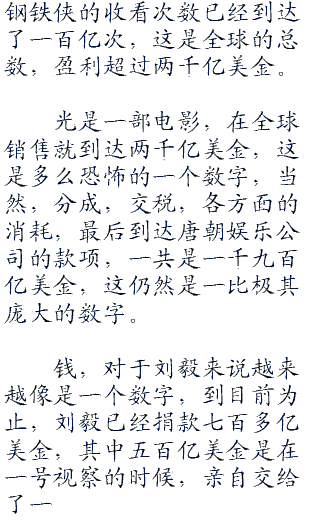 钢铁侠的收看次数已经到达
了一百亿次，这是全球的总
数，盈利超过两千亿美金。
光是一部电影，在全球
销售就到达两千亿美金，这
是多么恐怖的一个数字，当
然，分成，交税，各方面的
消耗，最后到达唐朝娱乐公
司的款项，一共是一千九百
亿美金，这仍然是一比极其
庞大的数字。
钱，对于刘毅来说越来
越像是一个数字，到目前为
止，刘毅已经捐款七百多亿
美金，其中五百亿美金是在
一号视察的时候，亲自交给
了一